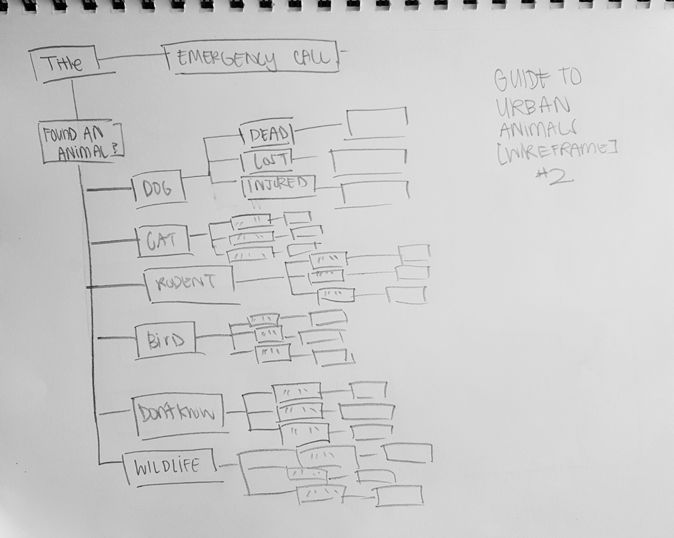 Title
EMERGENCY CALL
GUIDE TO
URBAN
ANIMALS
[WIREFRAME]
#2
FOUND AN
ANIMAL?
DEAD
LOST
INJURED
DOG
CAT
" "
" "
" "
RODENT
" "
" "
" "
BirD
" "
" "
" "
Don't KNOW
" "
" "
" "
WILDLIFE
" "
" "
" "